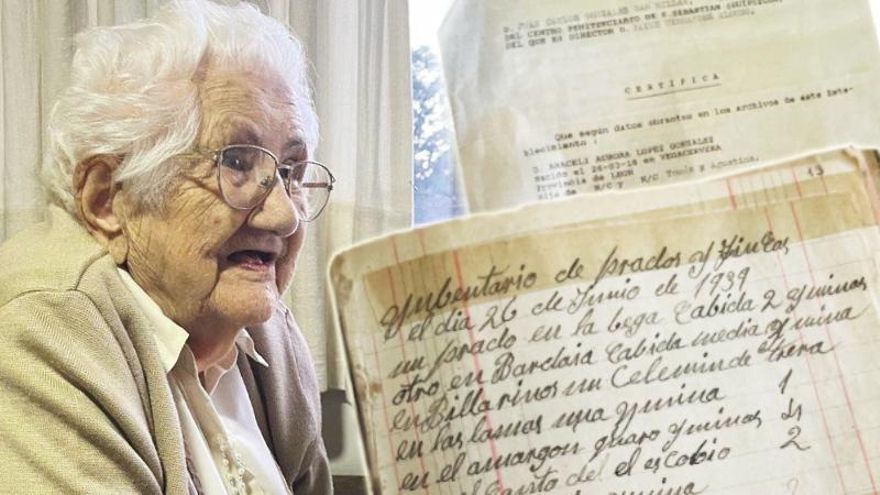 D. JUAN CARLOS GONZALEZ SAN MILLAN,
DEL CENTRO PENITENCIARIO DE S. SEBASTIAN (GUIPUZCOA)
DEL QUE ES DIRECTOR D.
CERTIFICA
Que según datos obrantes en los archivos de este Esta-
blecimiento :
D. ARACELI AURORA LOPEZ GONZALEZ
Nación el 26-03-18 en VEGACERVERA
Provincia de LEON
Hija de N/C y N/C Tomás y Agustina.
13
Ynbentario de prados Y Fincas
el dia 26 de Junio de 1939
un prado en la bega Cabida 2 Yminas
otro en Barclaia Cabida media Ymina
en Billarinos un Celemin de
en las lamas una Ymina 1
en el amargon quaro Yminas 4
del el escobio 2